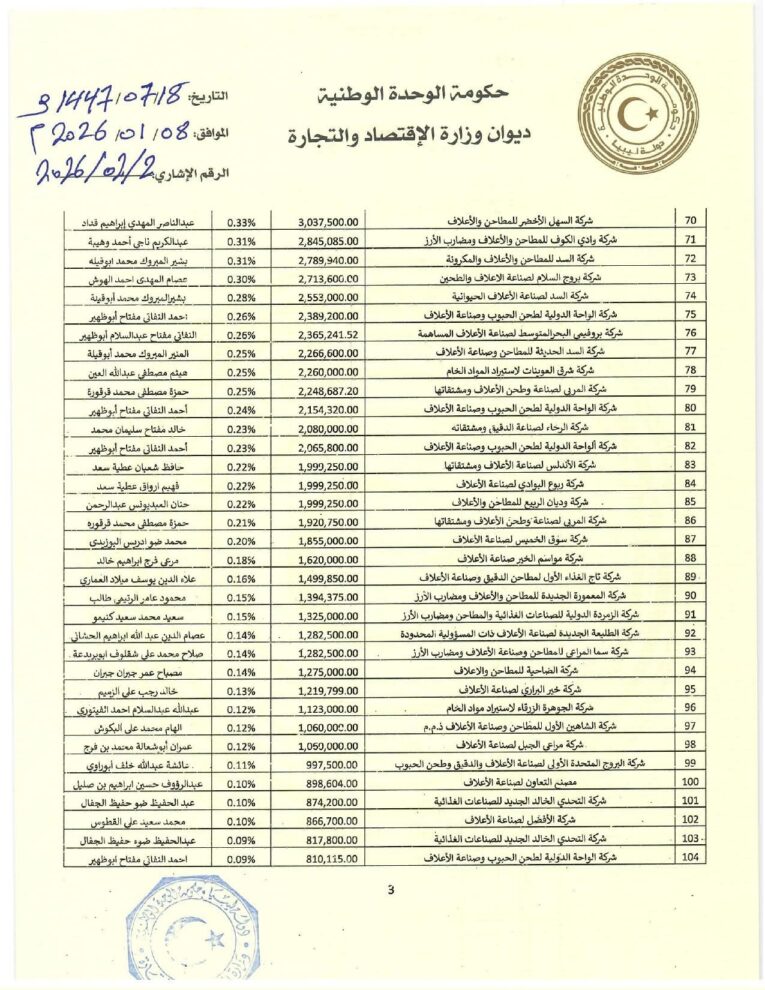 حكومة الوحدة الوطنية
ديوان وزارة الإقتصاد والتجارة
التاريخ: 1447/07/18
الموافق: 2026/01/08 م
الرقم الإشاري: 2026/02/2
70 شركة السهل الأخضر للمطاحن والأعلاف 3,037,500.00 0.33% عبدالناصر المهدي إبراهيم قداد
71 شركة وادي الكوف للمطاحن والأعلاف ومضارب الأرز 2,845,085.00 0.31% عبدالكريم ناجي أحمد وهيبة
72 شركة السد للمطاحن والأعلاف والمكرونة 2,789,940.00 0.31% بشير المبروك محمد ابوقيله
73 شركة بروج السلام لصناعة الاعلاف والطحين 2,713,600.00 0.30% عصام المهدي احمد الهوش
74 شركة السد لصناعة الأعلاف الحيوانية 2,553,000.00 0.28% بشيرالمبروك محمد أبوقيلة
75 شركة الواحة الدولية لطحن الحبوب وصناعة الأعلاف 2,389,200.00 0.26% احمد التفاتي مفتاح أبوظهير
76 شركة بروفيمي البحرالمتوسط لصناعة الأعلاف المساهمة 2,365,241.52 0.26% التفاتي مفتاح عبدالسلام أبوظهير
77 شركة السد الحديثة للمطاحن وصناعة الأعلاف 2,266,600.00 0.25% المنير المبروك محمد أبوقيلة
78 شركة شرق العوينات لاستيراد المواد الخام 2,260,000.00 0.25% هيثم مصطفى عبدالله العين
79 شركة المربى لصناعة وطحن الأعلاف ومشتقاتها 2,248,687.20 0.25% حمزة مصطفى محمد قرقورة
80 شركة الواحة الدولية لطحن الحبوب وصناعة الأعلاف 2,154,320.00 0.24% أحمد التفاتي مفتاح أبوظهير
81 شركة الرحاء لصناعة الدقيق ومشتقاته 2,080,000.00 0.23% خالد مفتاح سليمان محمد
82 شركة الواحة الدولية لطحن الحبوب وصناعة الأعلاف 2,065,800.00 0.23% أحمد التفاتي مفتاح أبوظهير
83 شركة الأندلس لصناعة الأعلاف ومشتقاتها 1,999,250.00 0.22% حافظ شعبان عطية سعد
84 شركة ربوع البوادي لصناعة الأعلاف 1,999,250.00 0.22% فهيم ارواق عطية سعد
85 شركة وديان الربيع للمطاحن والأعلاف 1,999,250.00 0.22% حنان العبديونس عبدالرحمن
86 شركة المربى لصناعة وطحن الأعلاف ومشتقاتها 1,920,750.00 0.21% حمزة مصطفى محمد قرقوره
87 شركة سوق الخميس لصناعة الأعلاف 1,855,000.00 0.20% محمد ضو ادريس البوزيدي
88 شركة مواسم الخير صناعة الأعلاف 1,620,000.00 0.18% مرعى فرج ابراهيم خالد
89 شركة تاج الغذاء الأول لمطاحن الدقيق وصناعة الأعلاف 1,499,850.00 0.16% علاء الدين يوسف ميلاد العماري
90 شركة المعمورة الجديدة للمطاحن والأعلاف ومضارب الأرز 1,394,375.00 0.15% محمود عامر الرتيمي طالب
91 شركة الزمردة الدولية للصناعات الغذائية والمطاحن ومضارب الأرز 1,325,000.00 0.15% سعيد محمد سعيد كنيمو
92 شركة الطليعة الجديدة لصناعة الأعلاف ذات المسؤولية المحدودة 1,282,500.00 0.14% عصام الدين عبد الله ابراهيم الحشاني
93 شركة سما المراعي للمطاحن وصناعة الأعلاف ومضارب الأرز 1,282,500.00 0.14% صلاح محمد علي شقلوف ابوبريدعة
94 شركة الضاحية للمطاحن والاعلاف 1,275,000.00 0.14% مصباح عمر جبران جبران
95 شركة خير البراري لصناعة الأعلاف 1,219,799.00 0.13% خالد رجب علي الزميم
96 شركة الجوهرة الزرقاء لاستيراد مواد الخام 1,123,000.00 0.12% عبدالله عبدالسلام احمد الفيتوري
97 شركة الشاهين الأول للمطاحن وصناعة الأعلاف ذ.م.م 1,060,000.00 0.12% الهام محمد علي البكوش
98 شركة مراعي الجبل لصناعة الأعلاف 1,060,000.00 0.12% عمران أبوشعالة محمد بن فرج
99 شركة البروج المتحدة الأولى لصناعة الأعلاف والدقيق وطحن الحبوب 997,500.00 0.11% عائشة عبدالله خلف أبوراوي
100 مصنع التعاون لصناعة الأعلاف 898,604.00 0.10% عبدالرؤوف حسين ابراهيم بن صليل
101 شركة التحدي الخالد الجديد للصناعات الغذائية 874,200.00 0.10% عبد الحفيظ ضو حفيظ الجفال
102 شركة الأفضل لصناعة الأعلاف 866,700.00 0.10% محمد سعيد علي القطوس
103 شركة التحدي الخالد الجديد للصناعات الغذائية 817,800.00 0.09% عبدالحفيظ ضوء حفيظ الجفال
104 شركة الواحة الدولية لطحن الحبوب وصناعة الأعلاف 810,115.00 0.09% احمد التفاتي مفتاح ابوظهير
3